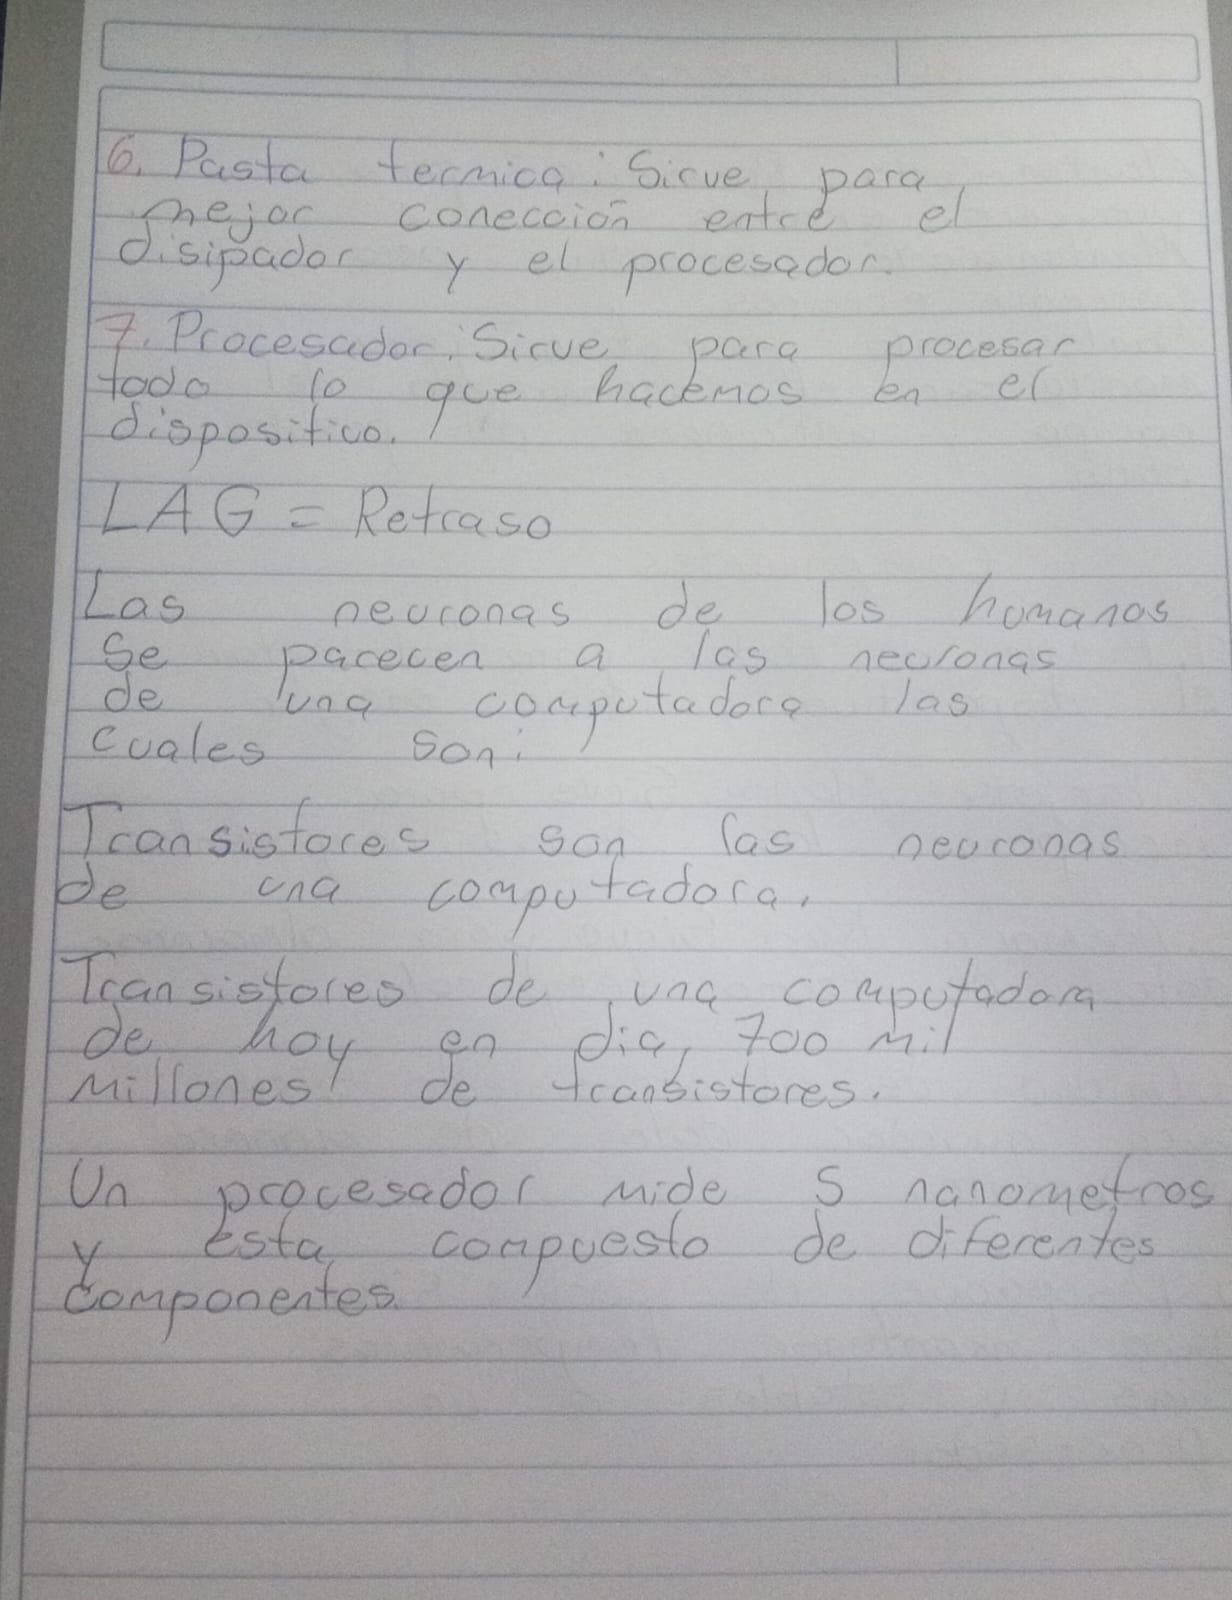 6. Pasta termica: Sirve para
mejor conección entre el
disipador y el procesador.
7. Procesador: Sirve para procesar
todo lo que hacemos en el
dispositivo.
LAG = Retraso
Las neuronas de los humanos
se parecen a las neuronas
de una computadora las
cuales son:
Transistores son las neuronas
de una computadora.
Transistores de una computadora
de hoy en dia, 700 mil
millones de transistores.
Un procesador mide 5 nanometros
y esta compuesto de diferentes
componentes.